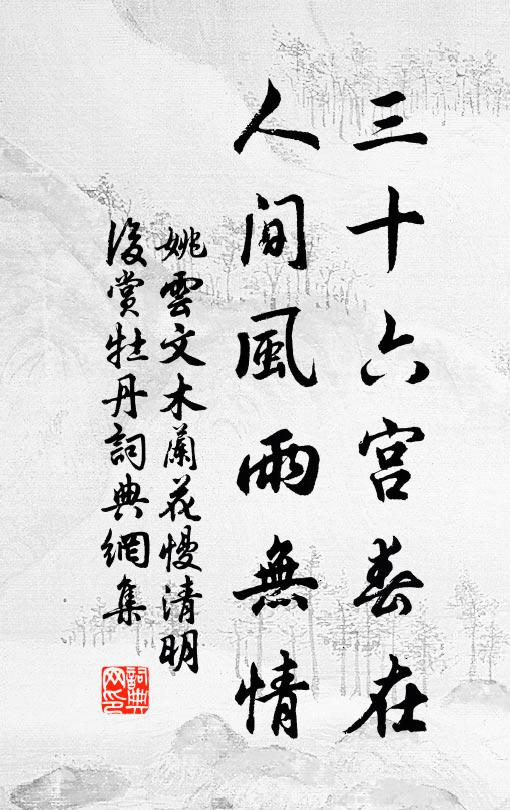 三十六宮春在
人間風雨無情
姚雲文木蘭花慢清明
後賞牡丹詞典網集
詞典網印